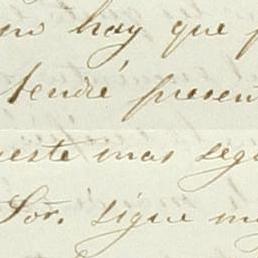 no hay que
tendré presen
este mas segu
Sor. sigue m